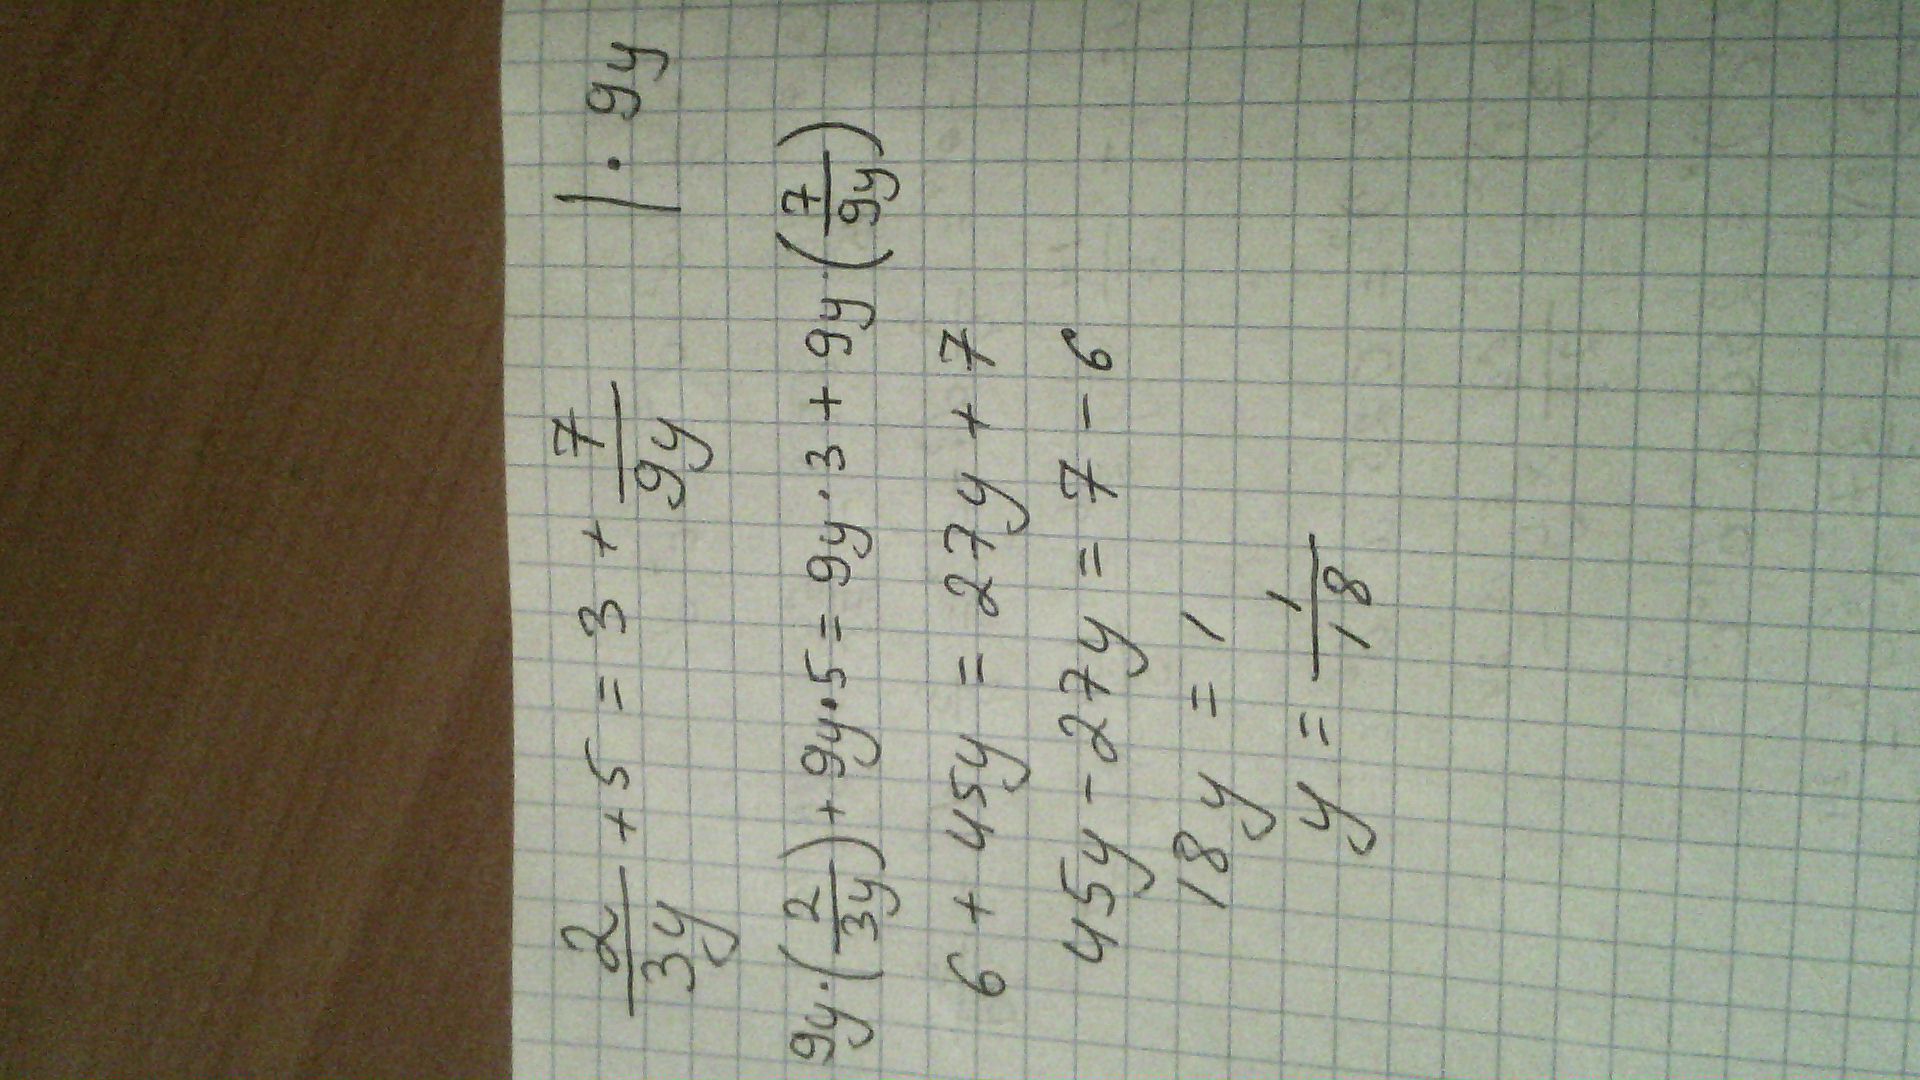 2/3y + 5 = 3 + 7/9y | · 9y
9y · (2/3y) + 9y · 5 = 9y · 3 + 9y · (7/9y)
6 + 45y = 27y + 7
45y - 27y = 7 - 6
18y = 1
y = 1/18